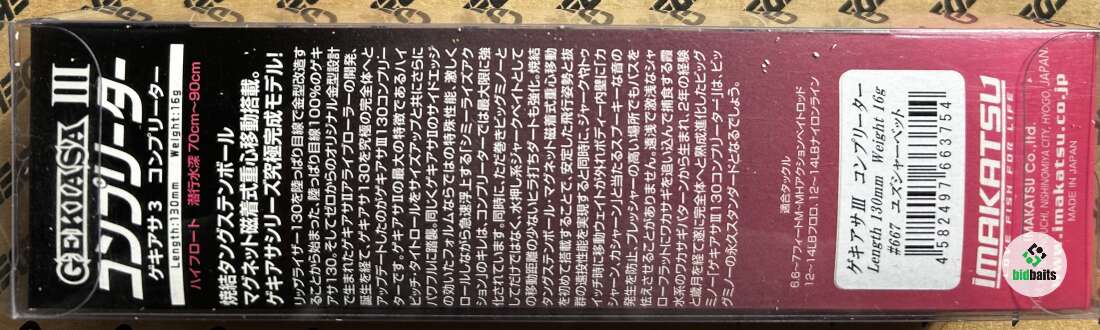 GEKIASA III
コンプリーター
ゲキアサ3 コンプリーター
Length:130mm Weight:16g
ハイフロート 潜行水深 70cm〜90cm
焼結タングステンボール
マグネット磁着式重心移動搭載。
ゲキアサシリーズ究極完成モデル!
リップライザー130を陸っぱり目線で金型改造す
ることから始まった、陸っぱり目線100%のゲキ
アサ130。そしてゼロからのオリジナル金型設計
で生まれたゲキアサIIアライブローラーの開発、
誕生を経て、ゲキアサ130を究極の完全体へと
アップデートしたのがゲキアサIII130コンプリー
ターです。ゲキアサIIの最大の特徴であるハイ
ピッチ・タイトロールをサイズアップと共にさらに
パワフルに踏襲。同じくゲキアサIIのサイドエッジ
の効いたフォルムならではの特殊性能、激しく
ロールしながら急速浮上する「シミーライズアク
ション」のキレは、コンプリーターでは最大限に強
化されています。ただ巻きビッグミノーと
してだけではなく、水押し系ジャークベイトとして
の移動距離の少ないヒラ打ちダートも強化。焼結
タングステンボール・マグネット磁着式重心移動
を初めて搭載することで、安定した飛行姿勢と抜
群の遠投性能を実現すると同時に、ジャークやトゥ
イッチ時に移動ウェイトが外れボディー内壁に「カ
シャーン、カシャーン!」と当たるスプーキーな音の
発生を防止。プレッシャーの高い場所でもバスを
怯えさせることがありません。遠浅で激浅なシャ
ローフラットにワカサギを追い込んで捕食する霞
水系のワカサギパターンから生まれ、2年の経験
と歳月を経て遂に完全体へと熟成進化したビッグ
ミノー「ゲキアサIII130コンプリーター」は、ビッ
グミノーの永久スタンダードとなるでしょう。
適合タックル
6.6〜7フィートM〜MHアクションベイトロッド
12〜14LBフロロ、12〜14LBナイロンライン
ゲキアサIII コンプリーター
Length 130mm Weight 16g
#667 ユズシャーベット
4 582497 663754
IMAKATSU
FISH FOR LIFE
IMAKATSU Co.,ltd.
UCHI, NISHINOMIYA CITY, HYOGO, JAPAN
www.imakatsu.co.jp
MADE IN JAPAN
bidbaits